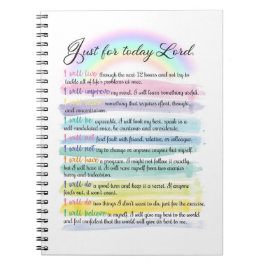 Just for today Lord.
I will live through the next 12 hours and not try to
tackle all of life's problems at once.
I will improve my mind. I will learn something useful.
something that requires effort, thought,
and concentration.
I will be agreeable. I will look my best, speak in a
well modulated voice, be courteous and considerate.
I will not find fault with friend, relative, or colleague.
I will not try to change or improve anyone but myself.
I will have a program. I might not follow it exactly,
but I will have it. I will save myself from two enemies
hurry and indecision.
I will do a good turn and keep it a secret. If anyone
finds out, it won't count.
I will do two things I don't want to do, just for exercise.
I will believe in myself. I will give my best to the world
and feel confident that the world will give its best to me.